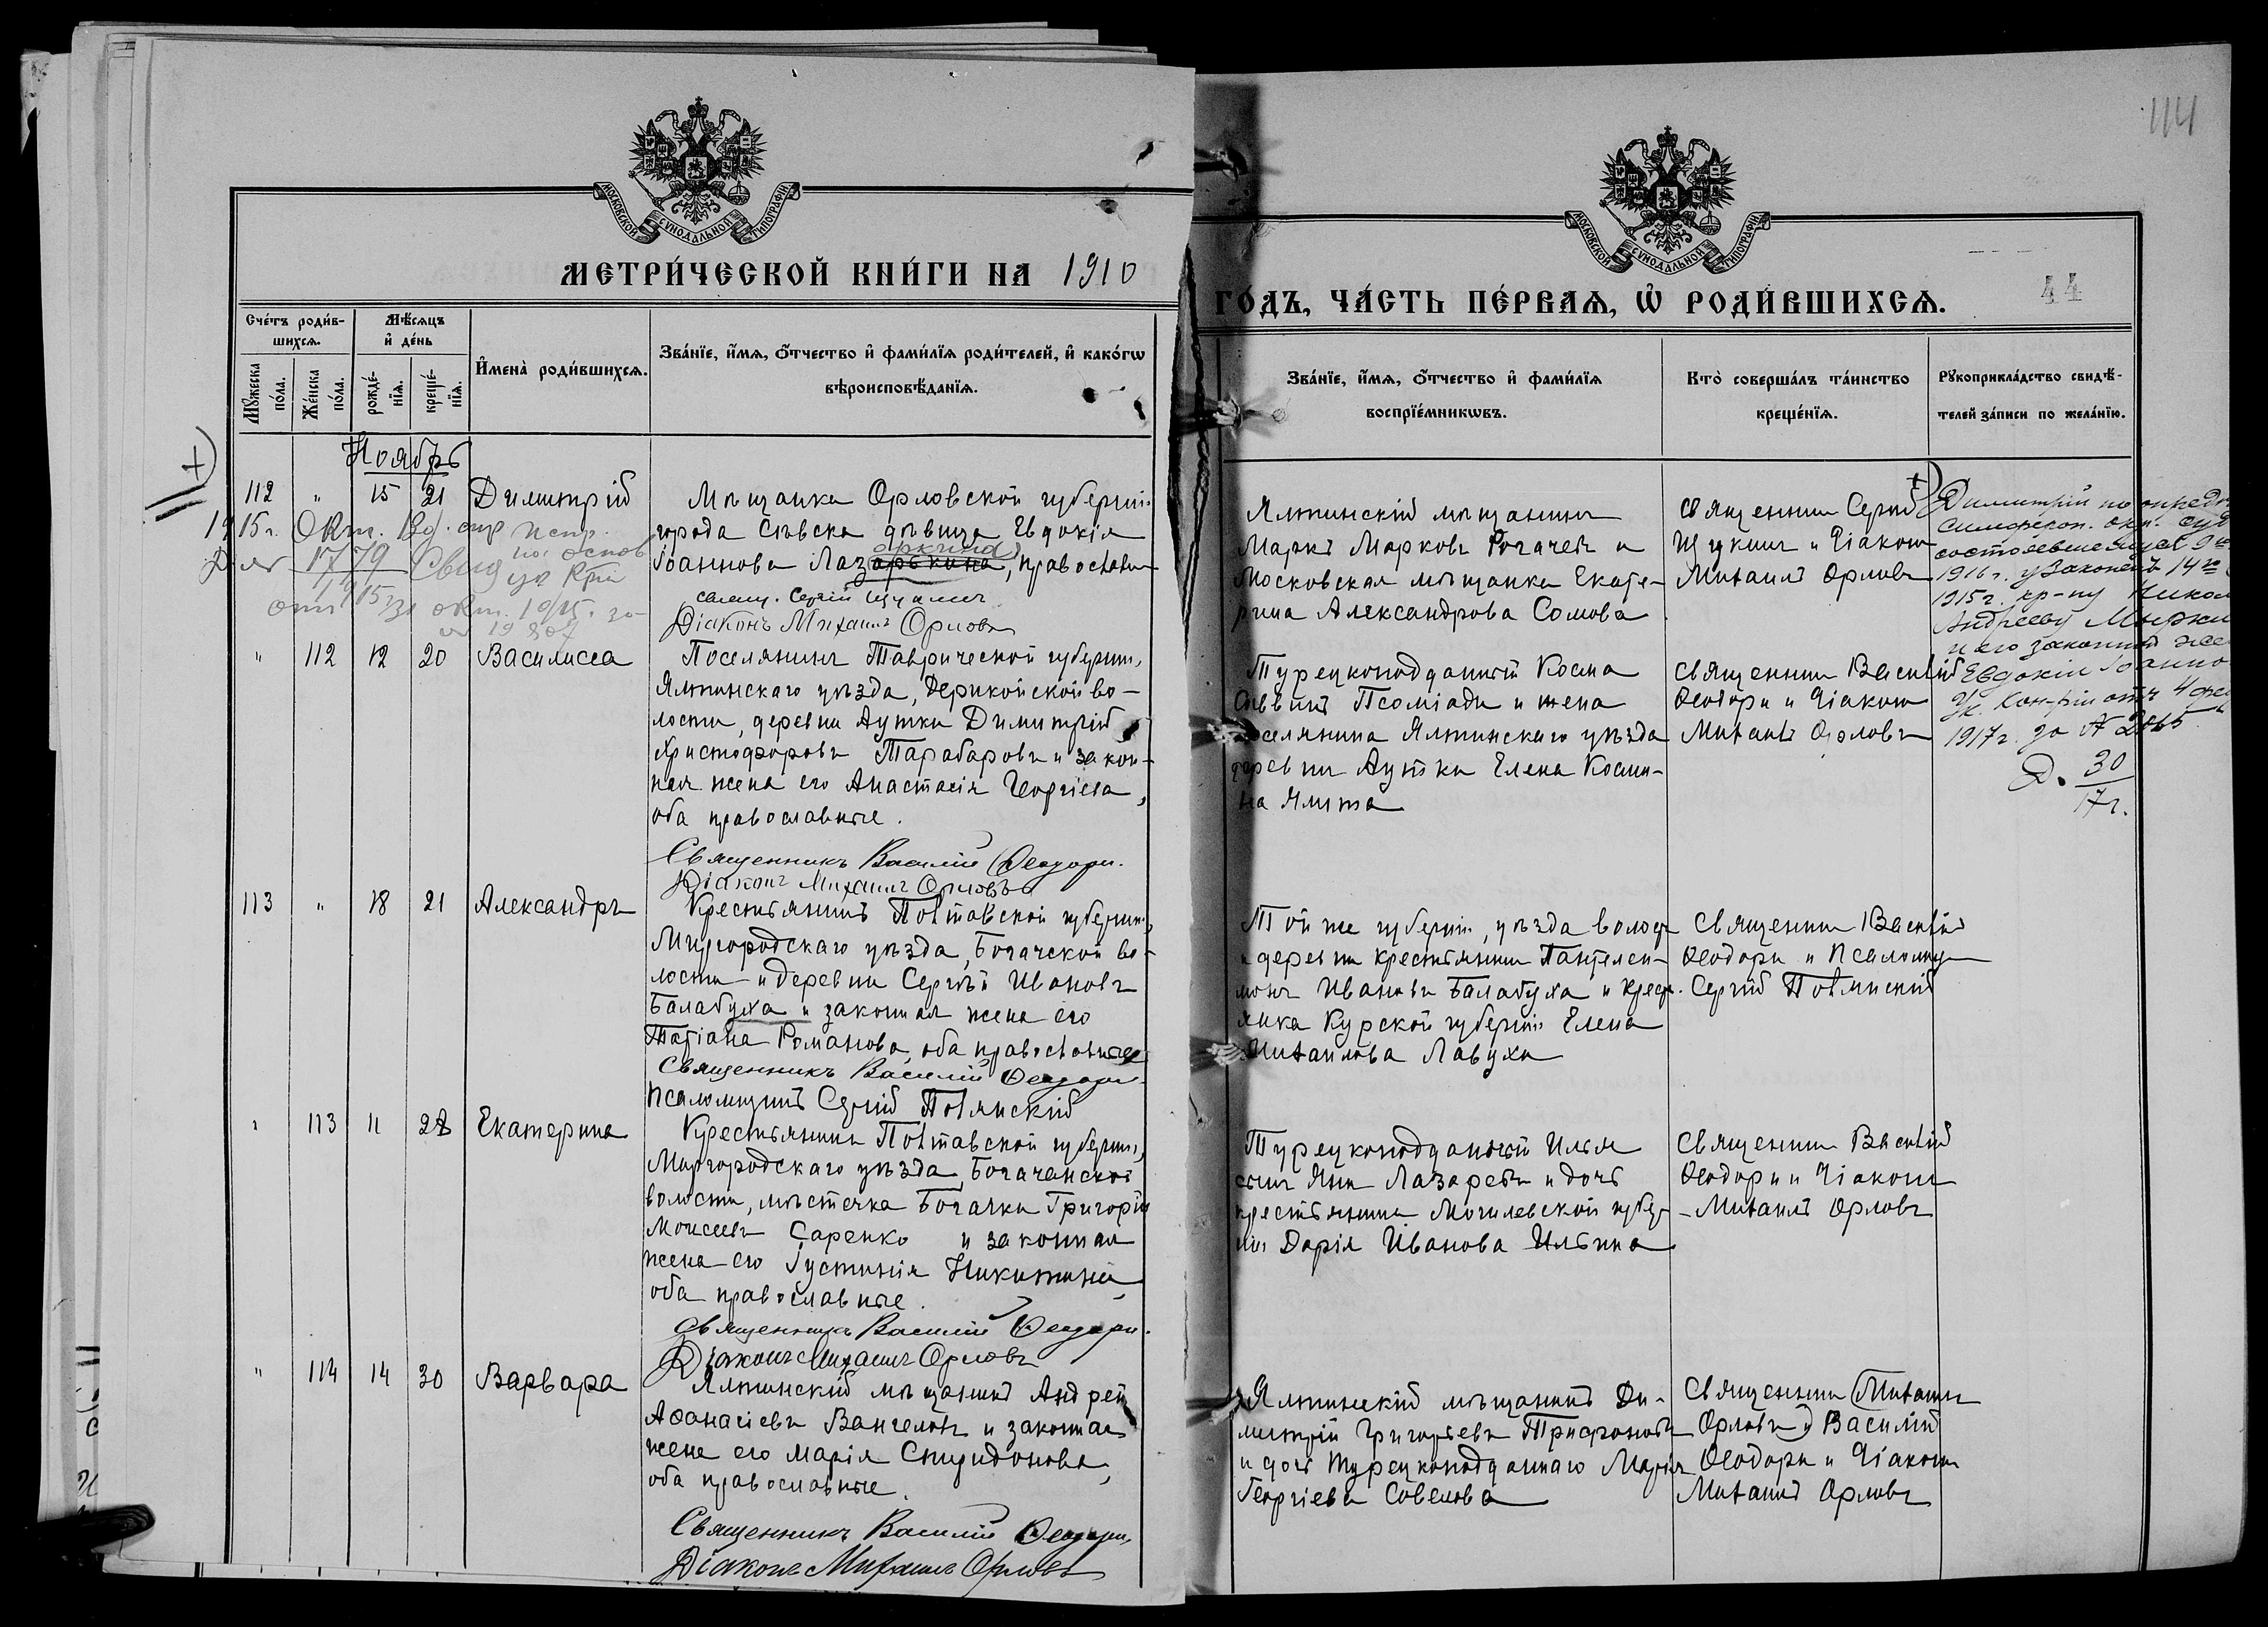 114
МОСКОВСКОЙ СѴНОДАЛЬНОЙ ТИПОГРАФІИ
МОСКОВСКОЙ СѴНОДАЛЬНОЙ ТИПОГРАФІИ
МЕТРИ́ЧЕСКОЙ КНИ́ГИ НА 1910
ГО́ДЪ, ЧА́СТЬ ПЕ́РВАѦ, Ѡ҆ РОДИ́ВШИХСѦ.
44
Сче́тъ роди́в-
шихсѧ.
Мꙋ́жеска по́ла.
Же́нска по́ла.
Мѣ́сѧцъ
и҆ де́нь
рожде́-
нїѧ.
креще́-
нїѧ.
И҆мена̀ роди́вшихсѧ.
Зва́нїе, и҆́мѧ, ѻ҆́тчество и҆ фами́лїѧ роди́телей, и҆ како́гѡ
вѣроисповѣ́данїѧ.
Зва́нїе, и҆́мѧ, ѻ҆́тчество и҆ фами́лїѧ
воспрїе́мникѡвъ.
Кто̀ соверша́лъ та́инство
креще́нїѧ.
Рꙋкоприкла́дство свидѣ́-
телей за́писи по жела́нїю.
Ноябрь
112 " 15 21 Димитрій
Мѣщанка Орловской губерніи
города Сѣвска дѣвица Евдокія
Іоаннова Лазарькина, православн
свящ. Сергій Щукинъ
Діаконъ Михаилъ Орловъ
Ялтинскій мѣщанинъ
Маркъ Марковъ Рогачевъ и
Московская мѣщанка Екате-
рина Александрова Сомова
Священник Сергій
Щукинъ и Діаконъ
Михаилъ Орловъ
1915 г. Окт.
1779
1915
Димитрій по опред
Симфероп. окр. суд
состоявшемуся 9
1916 г. узаконенъ 14
1915 г. кр-ну Никол
Андрееву
и его законной же
Евдокіи Іоанно
Ук. Кон-ріи отъ 4 фев
1917 г. за № 2065
Д. 30
17 г.
" 112 12 20 Василисса
Поселянинъ Таврической губерніи,
Ялтинскаго уѣзда, Дерикойской во-
лости, деревни Аутки Димитрій
Христофоровъ Тарабаровъ и закон-
ная жена его Анастасія Георгіева,
оба православные.
Священникъ Василій Ѳеодори.
Діаконъ Михаилъ Орловъ
Турецкоподданный Косма
Саввинъ Псоміади и жена
поселянина Ялтинскаго уѣзда
деревни Аутки Елена Косми-
на Ялита
Священник Василій
Ѳеодори и Діаконъ
Михаилъ Орловъ
113 " 18 21 Александръ
Крестьянинъ Полтавской губерніи,
Миргородскаго уѣзда, Богачской во-
лости и деревни Сергѣй Ивановъ
Балабуха и законная жена его
Татіана Романова, оба православные
Священникъ Василій Ѳеодори
Псаломщикъ Сергій Полянскій
Той же губерніи, уѣзда волост
и деревни крестьянинъ Пантелеи-
монъ Ивановъ Балабуха и крест.
янка Курской губерніи Елена
Михаилова Лавуха
Священник Василій
Ѳеодори и Псаломщ
Сергій Полянскій
" 113 11 28 Екатерина
Крестьянинъ Полтавской губерніи,
Миргородскаго уѣзда, Богачанской
волости, мѣстечка Богачки Григорій
Моисеевъ Саренко и законная
жена его Іустинія Никитина,
оба православные.
Священникъ Василій Ѳеодори.
Діаконъ Михаилъ Орловъ
Турецкоподданный Илья
сынъ Яни Лазаревъ и дочь
крестьянина Могилевской губер
ніи Дарія Иванова Ильина
Священник Василій
Ѳеодори и Діаконъ
Михаилъ Орловъ
" 114 14 30 Варвара
Ялтинскій мѣщанинъ Андрей
Аѳанасіевъ Вангеловъ и законная
жена его Марія Спиридонова,
оба православные.
Священникъ Василій Ѳеодори,
Діаконъ Михаилъ Орловъ
Ялтинскій мѣщанинъ Ди-
митрій Григорьевъ Трифоновъ
и дочь турецкоподданнаго Марія
Георгіева Совелова
Священники Михаилъ
Орловъ и Василій
Ѳеодори и Діаконъ
Михаилъ Орловъ